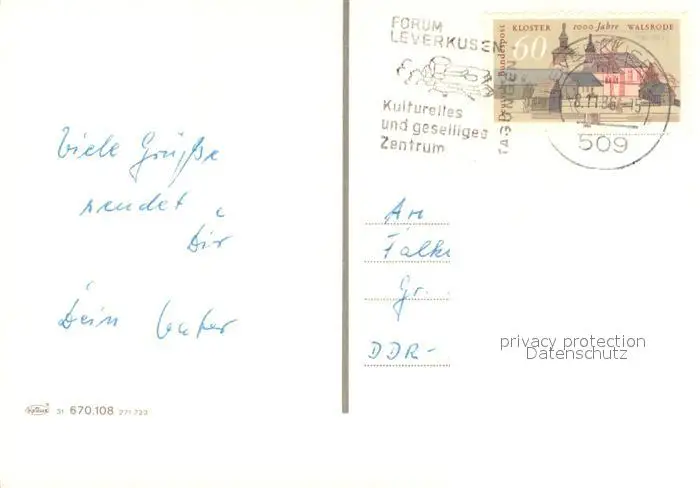 Viele Grüße
sendet
Dir
Dein Vater
31 670.108 271 723
FORUM
LEVERKUSEN
Kulturelles
und geselliges
Zentrum
TAGUNGEN
KLOSTER 1000-Jahre WALSRODE
60
Deutsche Bundespost
509
An
Falke
Gr.
DDR-
privacy protection
Datenschutz